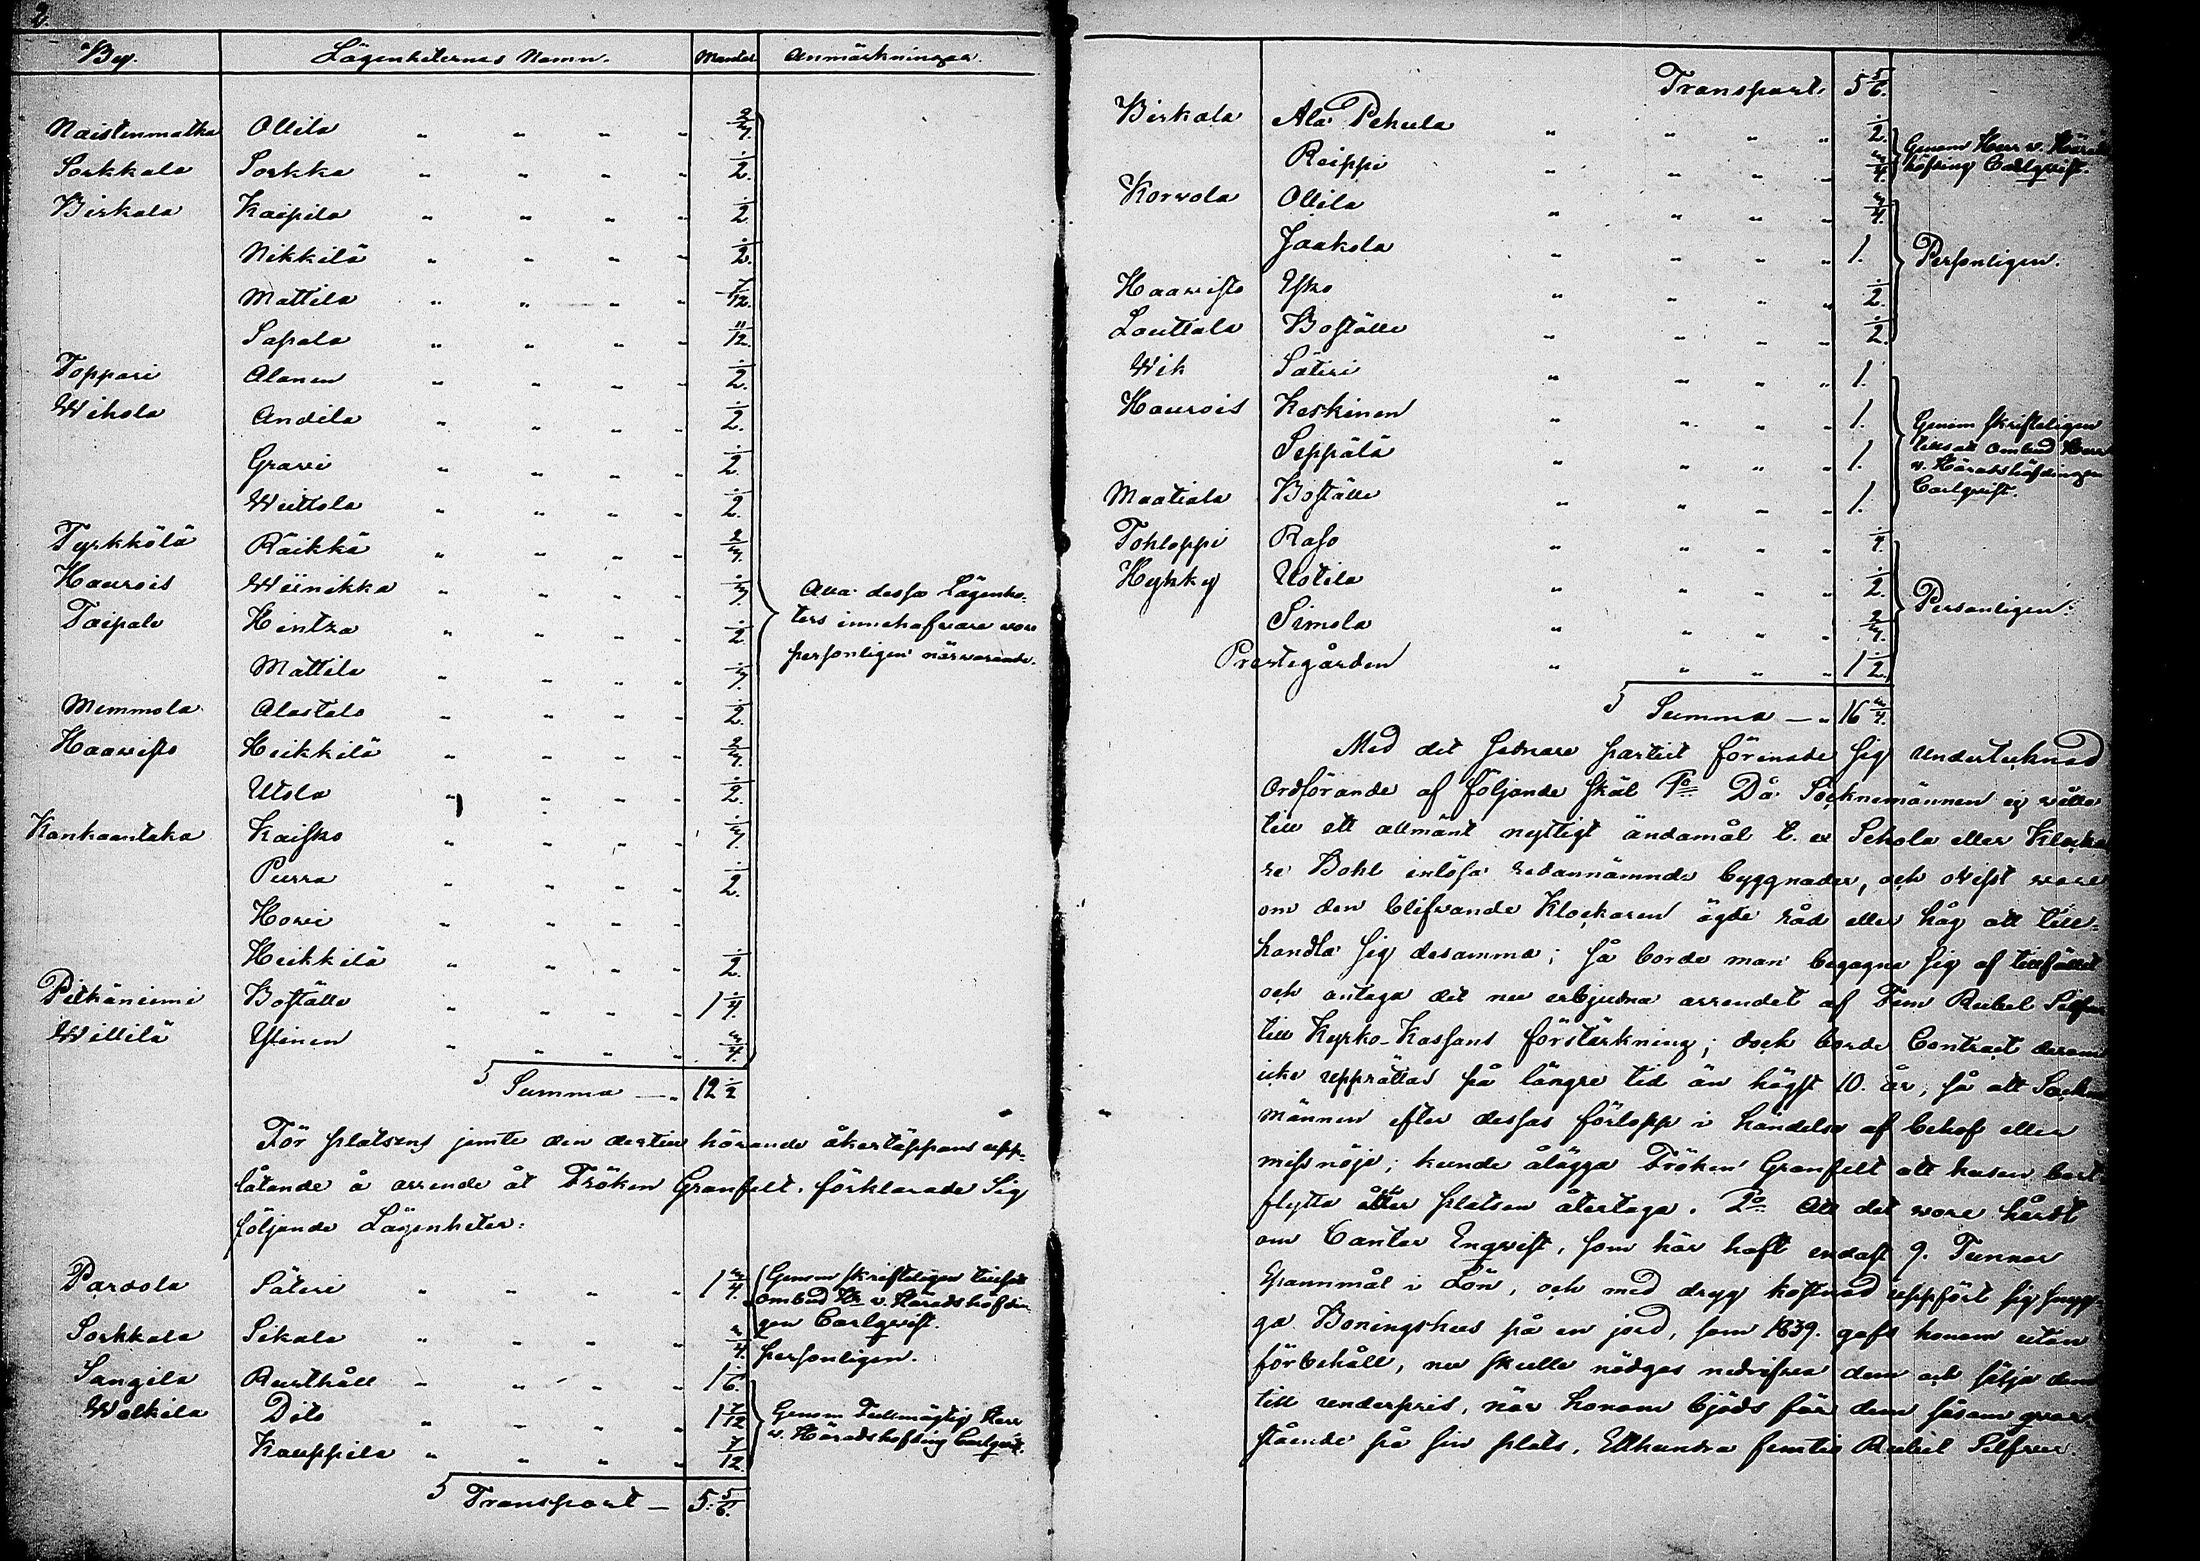 2.
By. Lägenheternas Namn. Mantal Anmärkningar.
Naistenmatka Ollila " " " " 2/3.
Sorkkala Sorkka " " " " 1/2.
Birkala Kaipila " " " " 1/2
Nikkilä " " " " 1/2.
Mattila " " " " 7/12.
Sapala " " " " 11/12.
Toppari Alanen " " " " 1/2.
Wihola Andila " " " " 1/2.
Gravi " " " " 1/2.
Weittola " " " " 1/2.
Tyrkkölä Räikkä " " " " 2/3.
Haurois Wiinikka " " " " 1/3.
Alla dessa Lägenhe-
Taipale Hintza " " " " 1/2
ters innehafvare voro
personligen närvarande.
Mattila " " " " 1/3.
Memmola Alastalo " " " " 1/2.
Haavisto Heikkilä " " " " 2/3.
Utola " " " " 1/2.
Kankaantaka Kaisko " " " " 1/3.
Purra " " " " 1/2.
Hovi " " " "
Heikkilä " " " " 1/2.
Pitkäniemi Boställe " " " " 1 1/4.
Willilä Yünen " " " " 3/4.
Summa — " 12 1/2
För platsens jemte den dertill hörande åkertäppans upp-
låtande å arrende åt Fröken Granfelt, förklarade Sig
följande Lägenheter:
Partola Säteri " " " " 1 3/4. Genom skrifteligen tillsatt
ombud Hr v. Häradshöfdin-
gen Carlqvist.
Sorkkala Sikala " " " " 3/4. personligen.
Sangila Rusthåll " " " " 1 1/6.
Walkila Dito " " " " 1 7/12 Genom Fullmägtig Herr
v. Häradshöfding Carlqvist.
Kauppila " " " " 7/12.
Transport — 5 5/6.
Transport. 5 5/6.
Birkala Ala Pehula " " " " 1/2. Genom Herr v. Härads
höfding Carlqvist.
Reippi " " " " 3/4.
Korvola Ollila " " " " 3/4.
Jaakola " " " " 1. Personligen.
Haavisto Ysko " " " " 1/2.
Louttala Boställe " " " " 1/2.
Wik Säteri " " " " 1.
Haurois Keskinen " " " " 1. Genom skrifteligen
tillsatt ombud Herr
v. Häradshöfdingen
Carlqvist.
Seppälä " " " " 1.
Maatiala Boställe " " " " 1.
Tohloppi Raso " " " " 1/4.
Hyhky Uotila " " " " 1/2. Personligen.
Simola " " " " 2/3.
Prestegården " " " " 1 1/2.
Summa — " 16 3/4.
Med det sednare partiet förenade sig undertecknad
Ordförande af följande skäl 1o Då Socknemännen ej ville
till ett allmänt nyttigt ändamål t. ex Schola eller Klocka
re Bohl inlösa redannämnde byggnader, och ovisst vore
om den blifvande Klockaren ägde råd eller håg att till-
handla sig desamma; så borde man begagna sig af tillfället
och antaga det nu erbjudna arrendet af Fem Rubel Silfver
till Kyrko-Kassans förstärkning; dock borde Contract derom
icke upprättas på längre tid än högst 10. år, så att Sockne
männen efter dessas förlopp i händelse af behof eller
missnöje, kunde ålägga Fröken Granfelt att husen bort
flytta eller platsen återtaga. 2o Att det vore hårdt
om Cantor Enqvist, som här haft endast 9. Tunnor
Spannmål i Lön, och med dryg kostnad uppfört sig snyg-
ga Boningshus på en jord, som 1839. gafs honom utan
förbehåll, nu skulle nödgas nedrifva dem och sälja dem
till underpris, när honom bjöds för dem såsom qvar
stående på sin plats, Etthundra femtio Rubel Silfver.